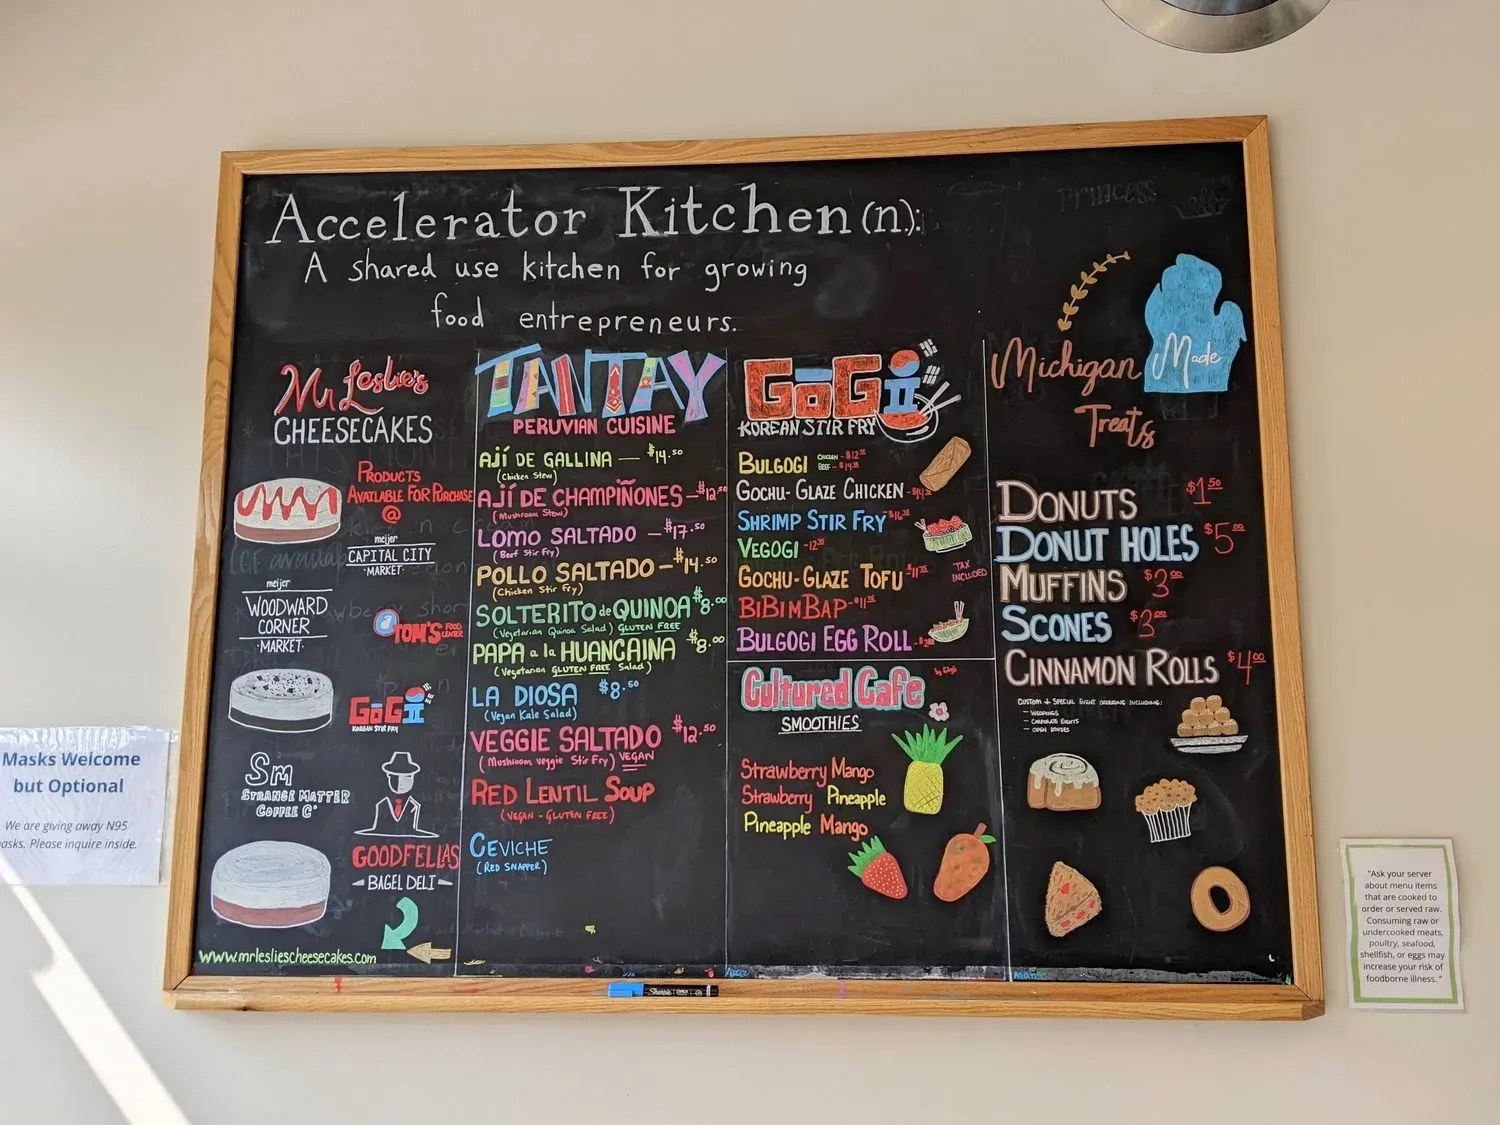 Accelerator Kitchen (n.):
A shared use kitchen for growing
food entrepreneurs.
Mr Leslie's
CHEESECAKES
PRODUCTS
AVAILABLE FOR PURCHASE
@
meijer
CAPITAL CITY
·MARKET·
meijer
WOODWARD
CORNER
·MARKET·
TOM'S FOOD
CENTER
GOGI
KOREAN STIR FRY
Sm
STRANGE MATTER
COFFEE Cº
GOODFELLAS
BAGEL DELI
www.mrlesliescheesecakes.com
TANTAY
PERUVIAN CUISINE
AJÍ DE GALLINA — $14.50
(Chicken Stew)
AJÍ DE CHAMPIÑONES — $12.50
(Mushroom Stew)
LOMO SALTADO — $17.50
(Beef Stir Fry)
POLLO SALTADO — $14.50
(Chicken Stir Fry)
SOLTERITO de QUINOA $8.00
(Vegetarian Quinoa Salad) GLUTEN FREE
PAPA a la HUANCAINA $8.00
(Vegetarian GLUTEN FREE Salad)
LA DIOSA $8.50
(Vegan Kale Salad)
VEGGIE SALTADO $12.50
(Mushroom Veggie Stir Fry) VEGAN
RED LENTIL SOUP
(VEGAN - GLUTEN FREE)
CEVICHE
(RED SNAPPER)
GOGI
KOREAN STIR FRY
BULGOGI CHICKEN
BEEF
GOCHU-GLAZE CHICKEN
SHRIMP STIR FRY
VEGOGI
GOCHU-GLAZE TOFU
BIBIMBAP
BULGOGI EGG ROLL
TAX
INCLUDED
Cultured Cafe
SMOOTHIES
Strawberry Mango
Strawberry Pineapple
Pineapple Mango
Michigan Made
Treats
DONUTS $1.50
DONUT HOLES $5.00
MUFFINS $3.00
SCONES $3.00
CINNAMON ROLLS $4.00
CUSTOM + SPECIAL EVENT ORDERING INCLUDING:
- WEDDINGS
- CORPORATE EVENTS
- OPEN HOUSES
Sharpie
Masks Welcome
but Optional
We are giving away N95
asks. Please inquire inside.
"Ask your server
about menu items
that are cooked to
order or served raw.
Consuming raw or
undercooked meats,
poultry, seafood,
shellfish, or eggs may
increase your risk of
foodborne illness."